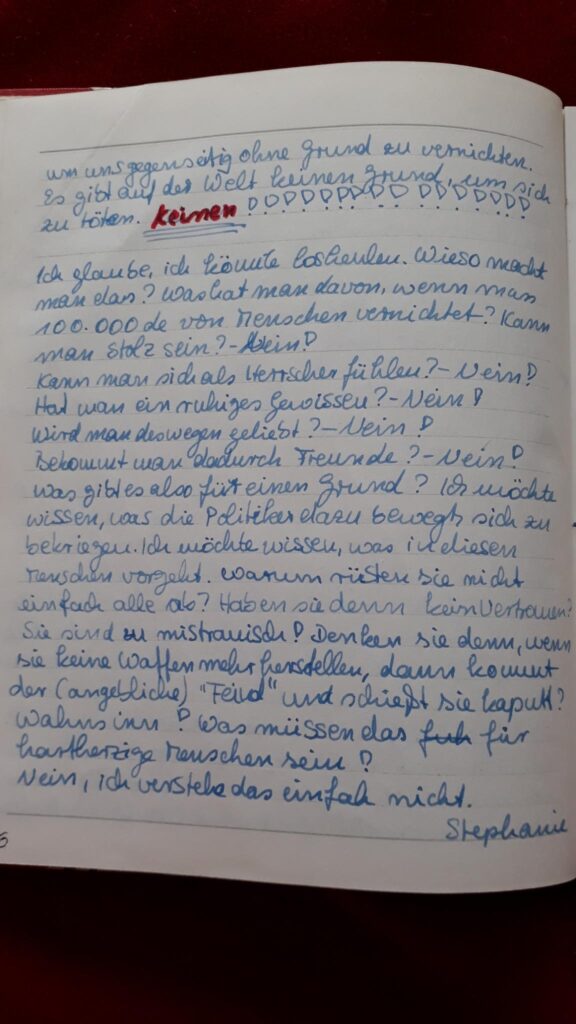 um uns gegenseitig ohne Grund zu vernichten.
Es gibt auf der Welt keinen Grund, um sich
zu töten. Keinen !!!!!!!!!!!!!!!!
Ich glaube, ich könnte losheulen. Wieso macht
man das? Was hat man davon, wenn man
100.000de von Menschen vernichtet? Kann
man Stolz sein? - Nein!
Kann man sich als Herrscher fühlen? - Nein!
Hat man ein ruhiges Gewissen? - Nein!
Wird man deswegen geliebt? - Nein!
Bekommt man dadurch Freunde? - Nein!
Was gibt es also für einen Grund? Ich möchte
wissen, was die Politiker dazu bewegt, sich zu
bekriegen. Ich möchte wissen, was in diesen
Menschen vorgeht. Warum rüsten sie nicht
einfach alle ab? Haben sie denn kein Vertrauen?
Sie sind zu mistrauisch! Denken sie denn, wenn
sie keine Waffen mehr herstellen, dann kommt
der (angebliche) "Feind" und schießt sie kaputt?
Wahnsinn! Was müssen das für
hartherzige Menschen sein?
Nein, ich verstehe das einfah nicht.
Stephanie